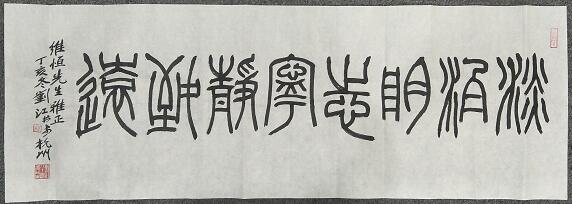 淡泊明志寧靜致遠
維恒先生雅正
丁亥冬劉江
杭州